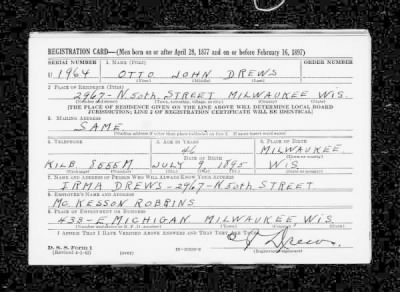 REGISTRATION CARD—(Men born on or after April 28, 1877 and on or before February 16, 1897)
SERIAL NUMBER 1. NAME (Print) ORDER NUMBER
U 1964 OTTO JOHN DREWS
(First) (Middle) (Last)
2. PLACE OF RESIDENCE (Print)
2967-N.50th. STREET MILWAUKEE WIS.
(Number and street) (Town, township, village, or city) (County) (State)
[THE PLACE OF RESIDENCE GIVEN ON THE LINE ABOVE WILL DETERMINE LOCAL BOARD
JURISDICTION; LINE 2 OF REGISTRATION CERTIFICATE WILL BE IDENTICAL]
3. MAILING ADDRESS
SAME.
[Mailing address if other than place indicated on line 2. If same insert word same]
4. TELEPHONE 5. AGE IN YEARS 6. PLACE OF BIRTH
46 MILWAUKEE
DATE OF BIRTH (Town or county)
KILB. 8655M JULY 9 1895 WIS
(Exchange) (Number) (Mo.) (Day) (Yr.) (State or country)
7. NAME AND ADDRESS OF PERSON WHO WILL ALWAYS KNOW YOUR ADDRESS
IRMA DREWS-2967-N.50th. STREET
8. EMPLOYER'S NAME AND ADDRESS
MC. KESSON ROBBINS
9. PLACE OF EMPLOYMENT OR BUSINESS
438-E. MICHIGAN MILWAUKEE, WIS.
(Number and street or R. F. D. number) (Town) (County) (State)
I AFFIRM THAT I HAVE VERIFIED ABOVE ANSWERS AND THAT THEY ARE TRUE.
D. S. S. Form 1
(Revised 4-1-42) (over) Drews.
(Registrant's signature)